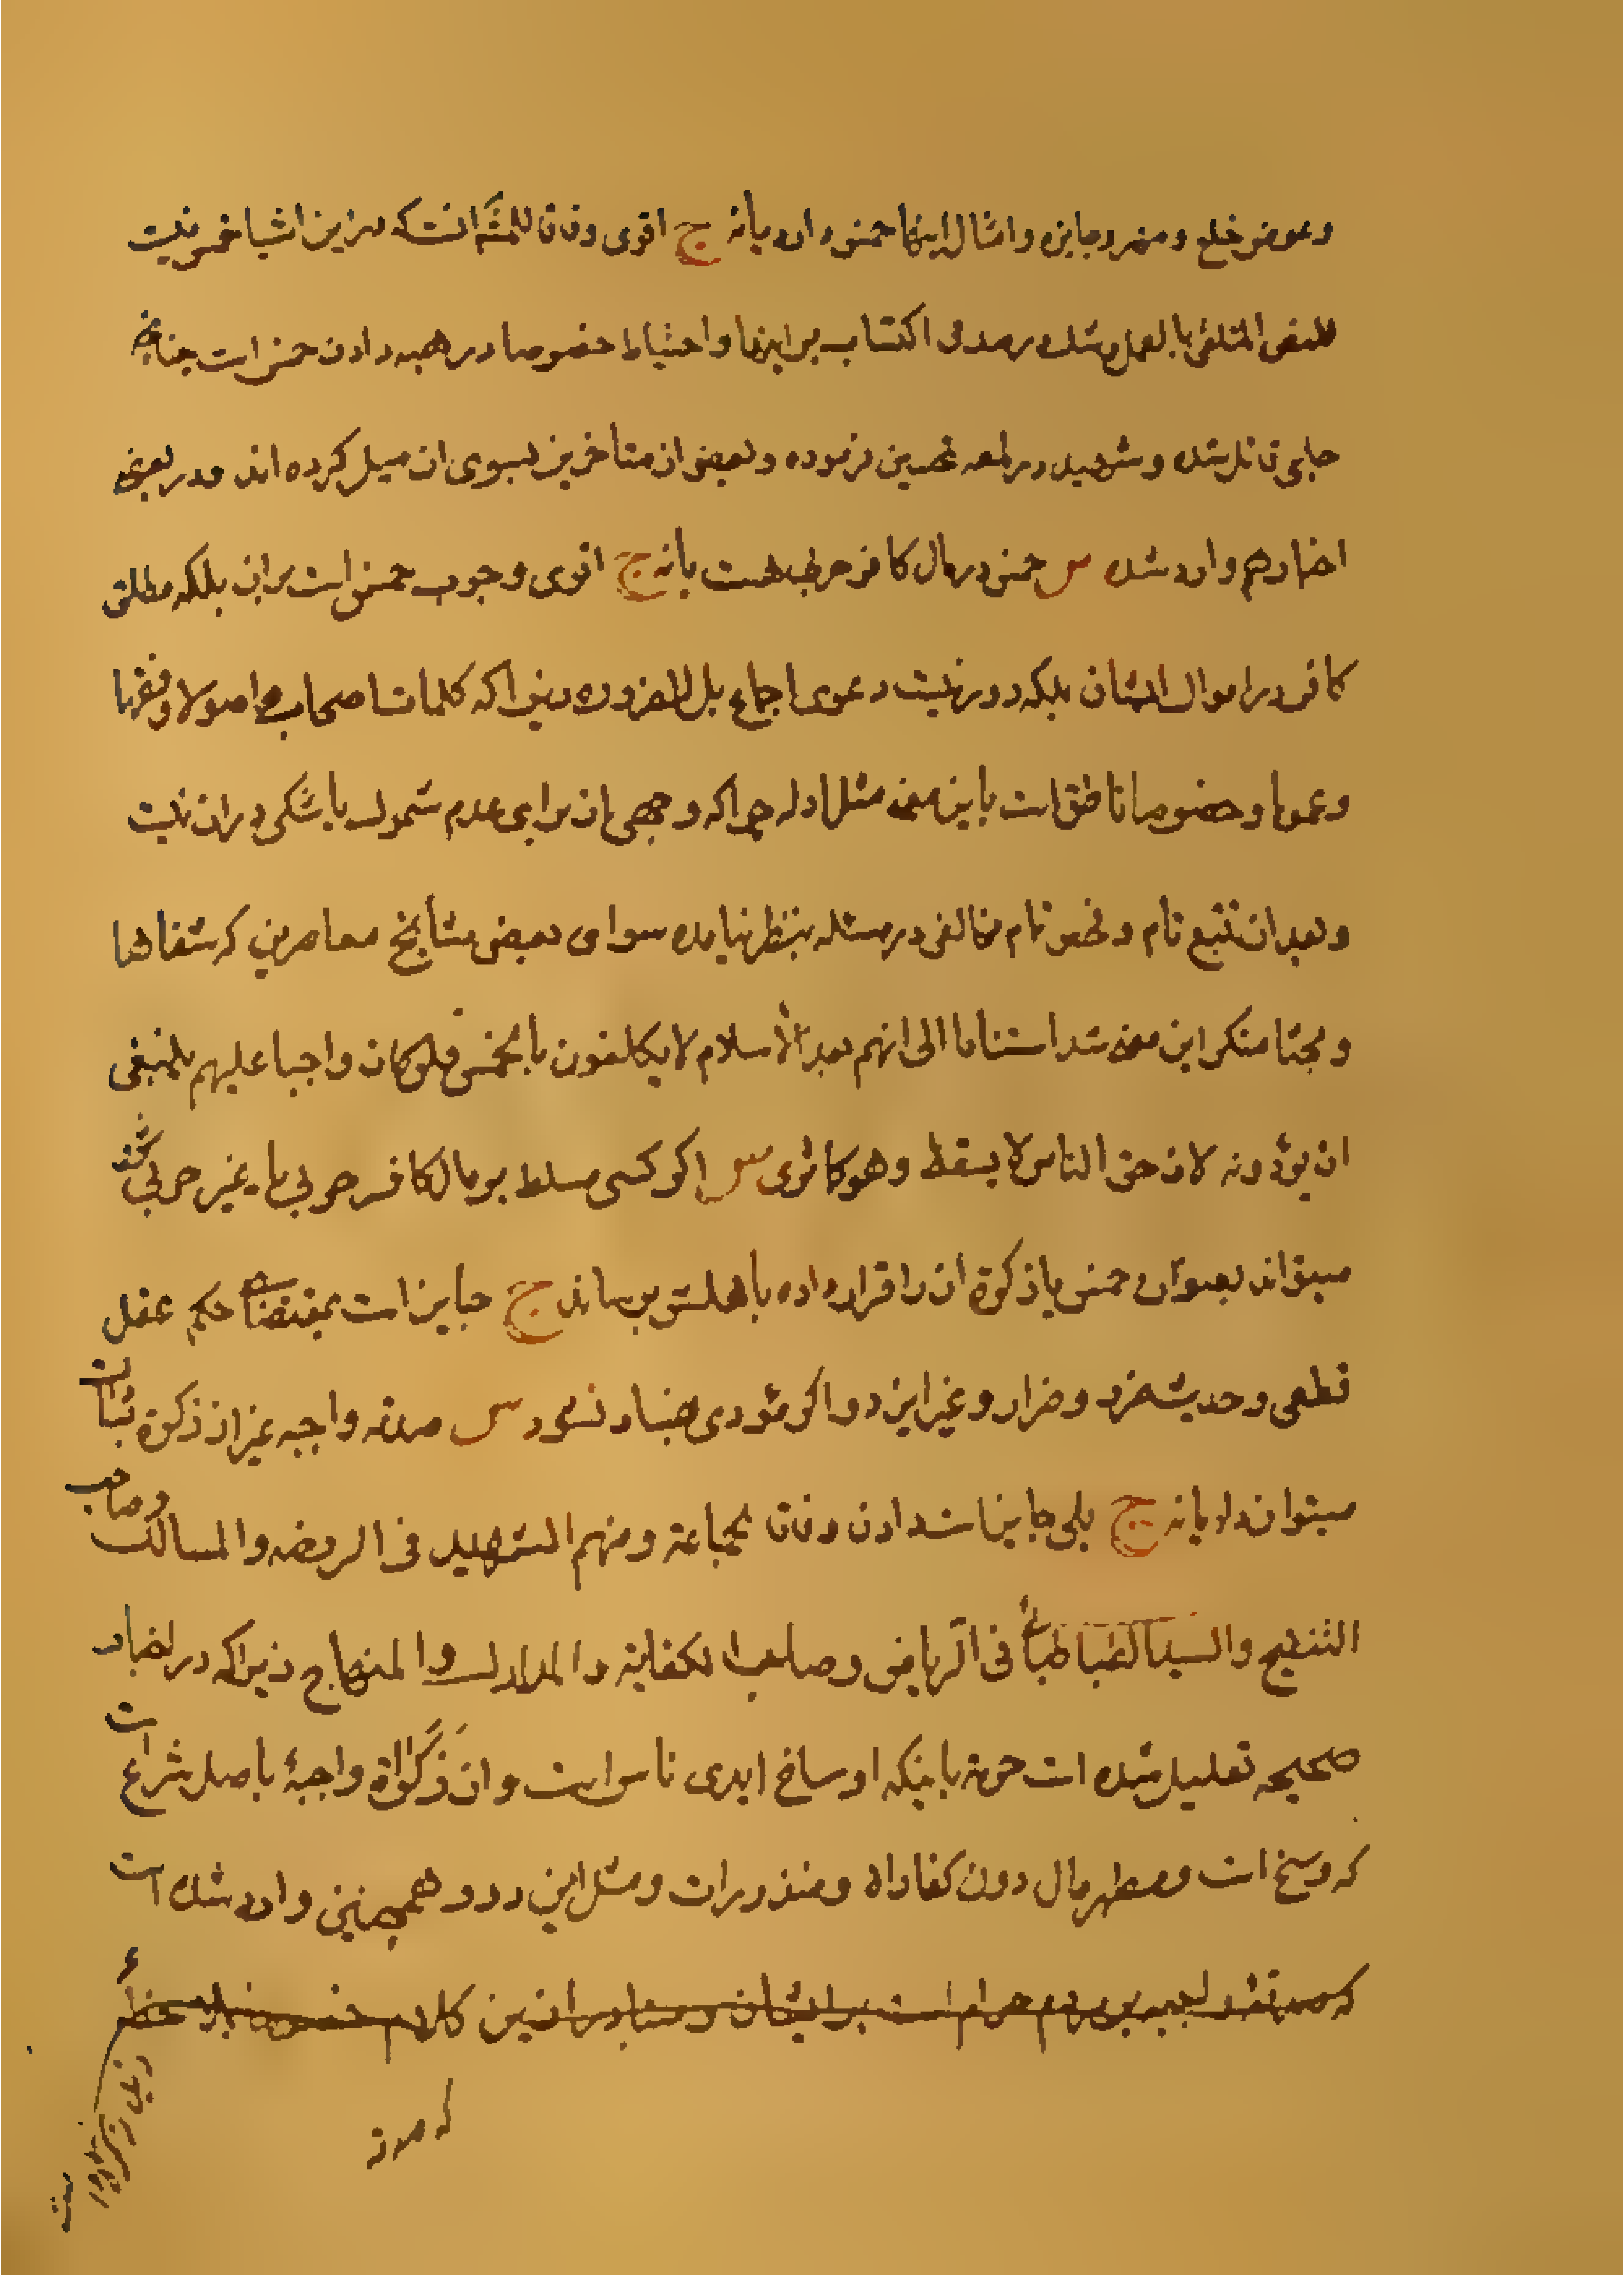 وعوض خلع ومهر وجايزه وامثال اینها خمس دارد یا نه ج اقوی وفاقا للمشه انست که در این اشیا خمس نیست
للنص المتلقی بالعمل شده در صدق اکتساب بر اینها واحتیاط خصوصا در هبه دادن خمس است چنانچه
حلبی قائل شده و شهید در لمعه تحسین فرموده و بعضی از متاخرین بسوی ان میل کرده اند و در بعضی
اخبار هم وارد شده س خمس در مال کافر حربی هست یا نه ج اقوی وجوب خمس است بران بلکه مطلق
کافر در اموال ایشان بلکه دور نیست دعوی اجماع بل الضروره زیرا که کلمات اصحاب اصولا وفقها
وعموما وخصوصا ناطق است باین معنی مثل ادله چرا که وجهی از برای عدم شمول یا شکی در ان نیست
وبعد از تتبع تام وفحص تام مخالفی در مسئله بنظر نیامده سوای بعضی مشایخ معاصرین که شفاها
وبحثا منکر این معنی شد استنادا الی انهم بعد الاسلام لا یکلفون بالخمس فلو کان واجبا علیهم لینبغی
ان یؤدونه لان حق الناس لا یسقط وهو کما تری س اگر کسی مسلط بر مال کافر حربی یا غیر حربی شود
میتواند بعنوان خمس یا زکوة ان را قرار داده باهلش برساند ج جایز است بمقتضای حکم عقل
قطعی وحدیث ضرر وضرار وغیر این دو اگر مؤدی بفساد نشود س صدقه واجبه غیر از زکوة بسادات
میتوان داد یا نه ج بلی جایز است دادن وفاقا لجماعة ومنهم الشهید فی الروضه والمسالک وصاحب
التنقیح والسید الطباطبائی فی الریاض وصاحب الکفایة والمدارک والمنهاج زیرا که در اخبار
صحیحه تعلیل شده است حرمة باینکه اوساخ ایدی ناس است وان زکواة واجبهٔ باصل شرع است
که وسخ است ومطهر مال دون کفاراة ومنذورات ومثل این دو وهمچنین وارد شده است
که صدقه واجبه بر مردم حرام است بر ایشان ومتبادر از این کلام
که صدقه